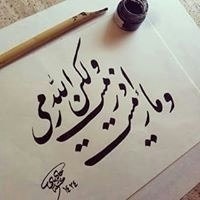 وما رميت اذ رميت
ولكن الله رمى